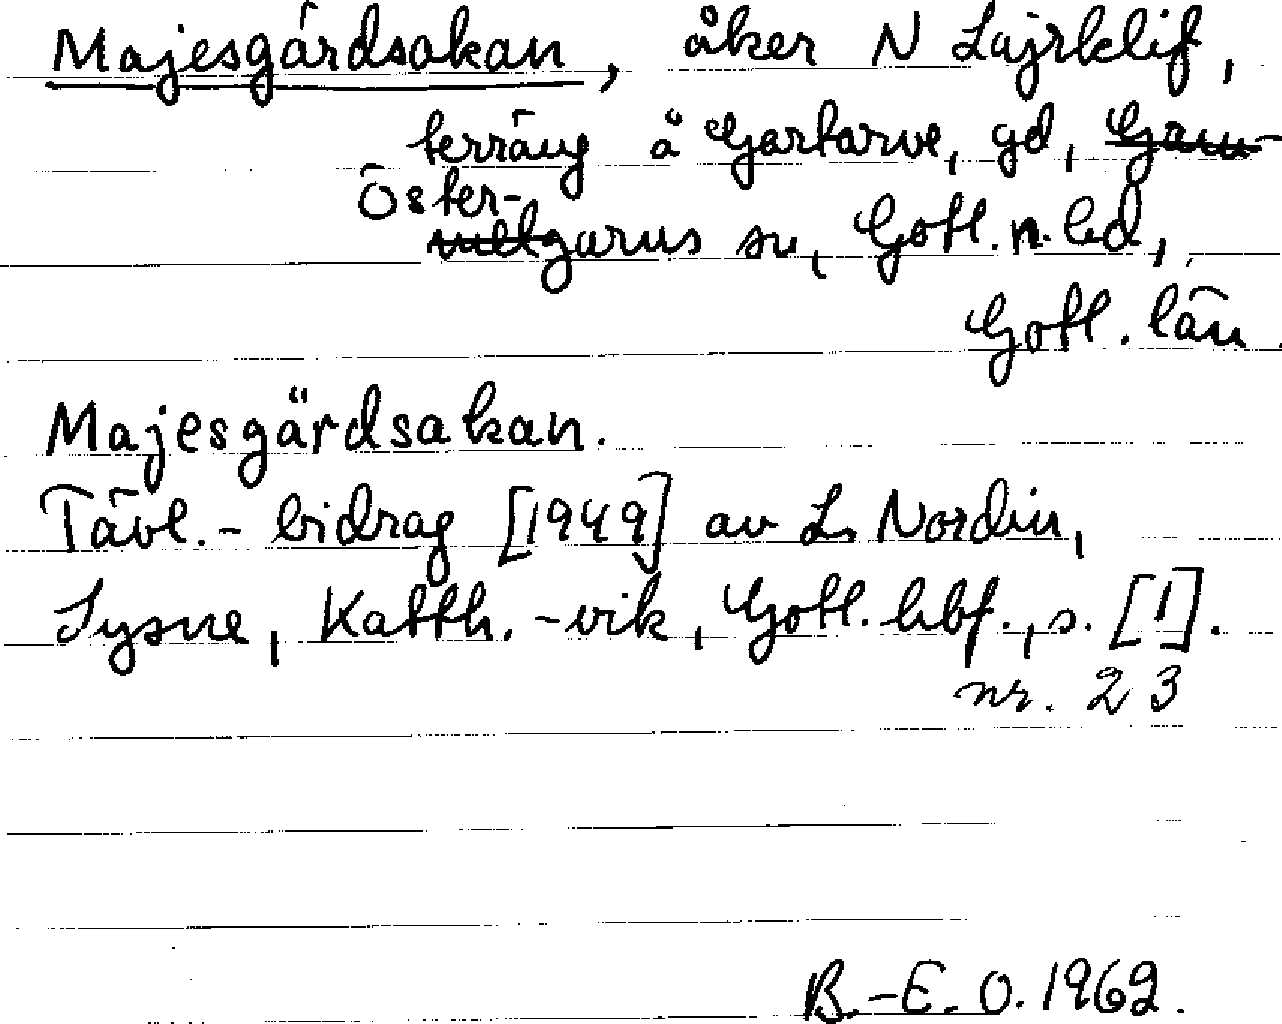 Majesgärdsakan, åker N Lajrklif,
terräng å Gartarve, gd, Gam-
Öster-
melgarns sn, Gotl. n. hd,
Gotl. län.
Majesgärdsakan.
Tävl.-bidrag [1949] av L. Nordin,
Sysne, Katth.-vik, Gotl. hbf., s. [1].
nr. 23
B.-E. O. 1962.